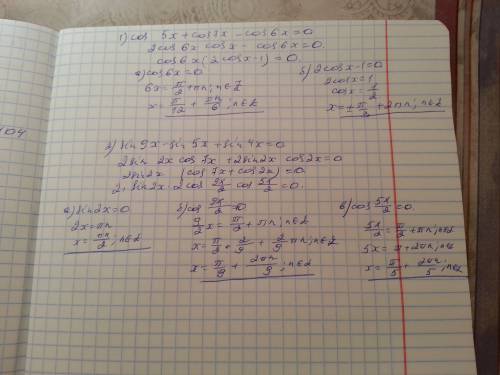 1) cos 5x + cos 7x - cos 6x = 0
2 cos 6x cos x - cos 6x = 0.
cos 6x (2 cos x - 1) = 0.
а) cos 6x = 0
6x = π/2 + πn; n∈Z
x = π/12 + πn/6; n∈Z
б) 2 cos x - 1 = 0
2 cos x = 1
cos x = 1/2
x = ± π/3 + 2πn; n∈Z
2) sin 9x - sin 5x + sin 4x = 0
2 sin 2x cos 7x + 2 sin 2x cos 2x = 0
2 sin 2x (cos 7x + cos 2x) = 0.
2 · sin 2x · 2 cos 9x/2 cos 5x/2 = 0.
а) sin 2x = 0
2x = πn
x = πn/2; n∈Z
б) cos 9x/2 = 0
9/2 x = π/2 + πn; n∈Z
x = π/2 · 2/9 + 2/9 πn; n∈Z
x = π/9 + 2πn/9; n∈Z
в) cos 5x/2 = 0.
5x/2 = π/2 + πn; n∈Z
5x = π + 2πn; n∈Z
x = π/5 + 2πn/5; n∈Z